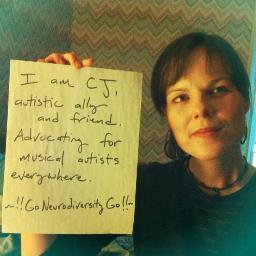 I am CJ,
autistic ally
and friend.
Advocating for
musical autists
everywhere.
~!!Go Neurodiversity Go!!~